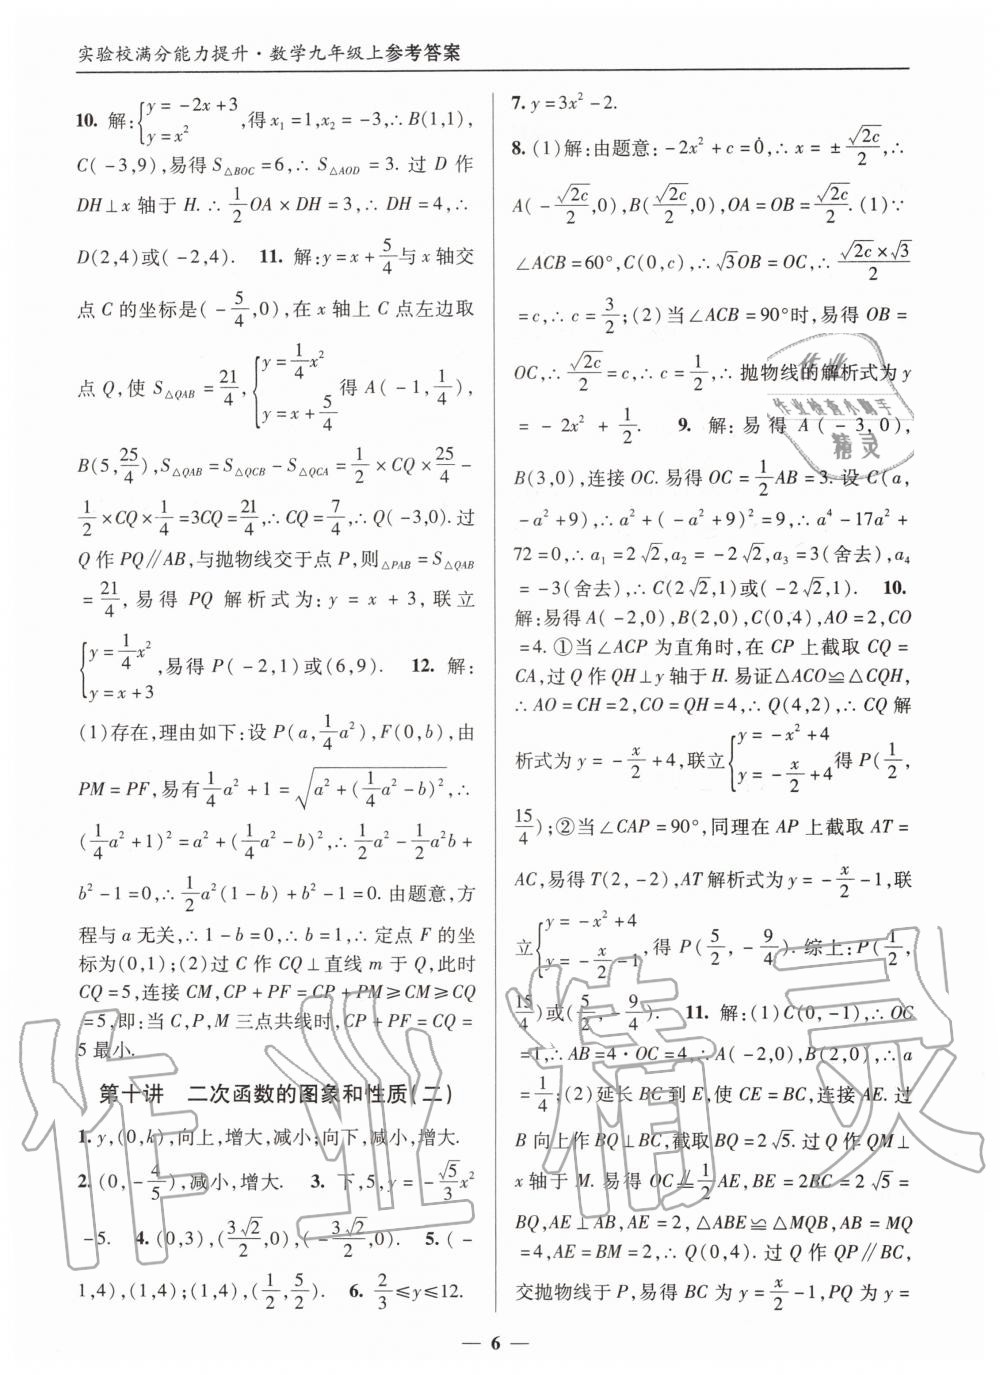 实验校满分能力提升·数学九年级上参考答案
10. 解:{y=-2x+3 y=x²,得x₁=1,x₂=-3,∴B(1,1),
C(-3,9),易得S△BOC=6,∴S△AOD=3.过D作
DH⊥x轴于H.∴1/2 OA×DH=3,∴DH=4,∴
D(2,4)或(-2,4). 11. 解:y=x+5/4与x轴交
点C的坐标是(-5/4,0),在x轴上C点左边取
点Q,使S△QAB=21/4,{y=1/4 x² y=x+5/4 得A(-1,1/4),
B(5,25/4),S△QAB=S△QCB-S△QCA=1/2×CQ×25/4-
1/2×CQ×1/4=3CQ=21/4,∴CQ=7/4,∴Q(-3,0).过
Q作PQ∥AB,与抛物线交于点P,则△PAB=S△QAB
=21/4,易得PQ解析式为:y=x+3,联立
{y=1/4 x² y=x+3,易得P(-2,1)或(6,9). 12. 解:
(1)存在,理由如下:设P(a,1/4 a²),F(0,b),由
PM=PF,易有1/4 a²+1=√(a²+(1/4 a²-b)²),∴
(1/4 a²+1)²=a²+(1/4 a²-b)²,∴1/2 a²-1/2 a²b+
b²-1=0,∴1/2 a²(1-b)+b²-1=0.由题意,方
程与a无关,∴1-b=0,∴b=1,∴定点F的坐
标为(0,1);(2)过C作CQ⊥直线m于Q,此时
CQ=5,连接CM,CP+PF=CP+PM≥CM≥CQ
=5,即:当C,P,M三点共线时,CP+PF=CQ=
5最小.
第十讲 二次函数的图象和性质(二)
1. y,(0,k),向上,增大,减小;向下,减小,增大.
2. (0,-4/5),减小,增大. 3. 下,5,y=-√5/3 x²
-5. 4. (0,3),(3√2/2,0),(-3√2/2,0). 5. (-
1,4),(1,4);(1,4),(1/2,5/2). 6. 2/3≤y≤12.
7. y=3x²-2.
8. (1)解:由题意:-2x²+c=0,∴x=±√2c/2,∴
A(-√2c/2,0),B(√2c/2,0),OA=OB=√2c/2.(1)∵
∠ACB=60°,C(0,c),∴√3OB=OC,∴√2c×√3/2
=c,∴c=3/2;(2)当∠ACB=90°时,易得OB=
OC,∴√2c/2=c,∴c=1/2,∴抛物线的解析式为y
=-2x²+1/2. 9. 解:易得A(-3,0),
B(3,0),连接OC.易得OC=1/2 AB=3.设C(a,
-a²+9),∴a²+(-a²+9)²=9,∴a⁴-17a²+
72=0,∴a₁=2√2,a₂=-2√2,a₃=3(舍去),a₄
=-3(舍去),∴C(2√2,1)或(-2√2,1). 10.
解:易得A(-2,0),B(2,0),C(0,4),AO=2,CO
=4.①当∠ACP为直角时,在CP上截取CQ=
CA,过Q作QH⊥y轴于H.易证△ACO≌△CQH,
∴AO=CH=2,CO=QH=4,∴Q(4,2),∴CQ解
析式为y=-x/2+4,联立{y=-x²+4 y=-x/2+4 得P(1/2,
15/4);②当∠CAP=90°,同理在AP上截取AT=
AC,易得T(2,-2),AT解析式为y=-x/2-1,联
立{y=-x²+4 y=-x/2-1,得P(5/2,-9/4).综上:P(1/2,
15/4)或(5/2,-9/4). 11. 解:(1)C(0,-1),∴OC
=1,∴AB=4·OC=4,∴A(-2,0),B(2,0),∴a
=1/4;(2)延长BC到E,使CE=BC,连接AE.过
B向上作BQ⊥BC,截取BQ=2√5.过Q作QM⊥
x轴于M.易得OC∥=1/2 AE,BE=2BC=2√5=
BQ,AE⊥AB,AE=2,△ABE≌△MQB,AB=MQ
=4,AE=BM=2,∴Q(0,4).过Q作QP∥BC,
交抛物线于P,易得BC为y=x/2-1,PQ为y=
— 6 —
作业
作业检查小助手
精灵
作业精灵